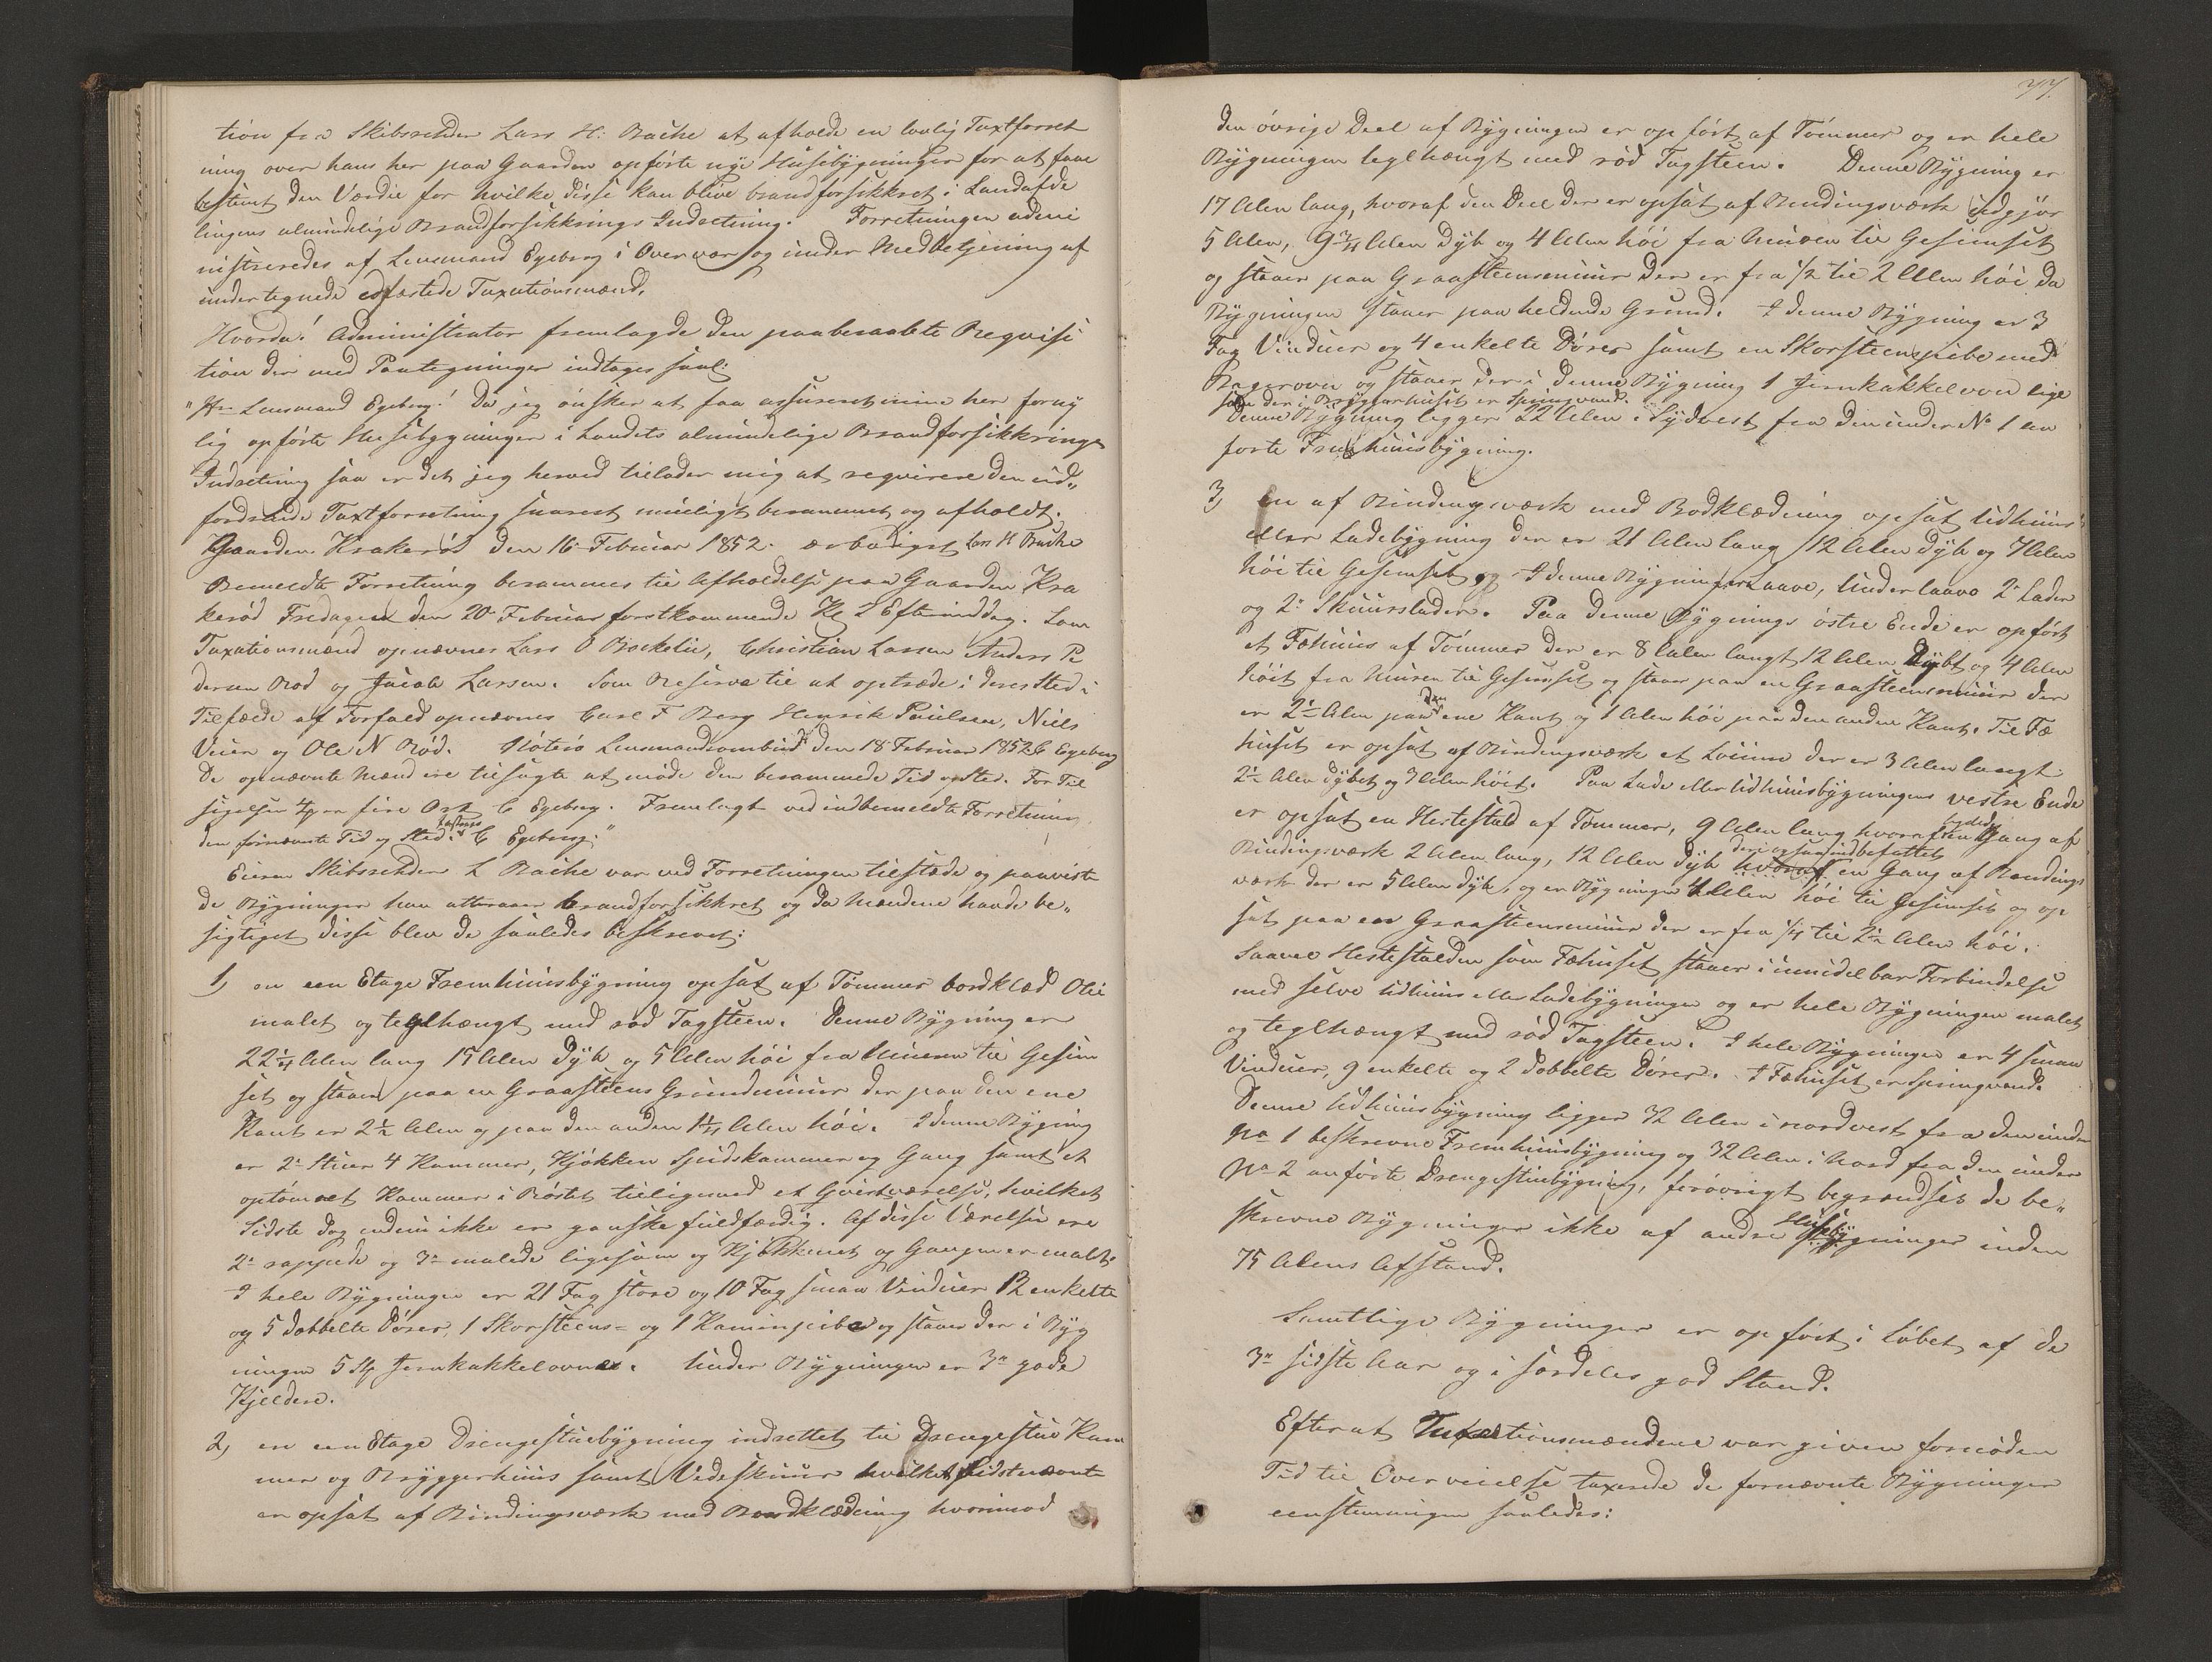 tion fra Skibsrehder Lars H: Bache at afholde en lovlig Taxtforret
ning over hans her paa Gaarden opførte nye Huusbygninger for at faae
bestemt den Værdie for hvilke disse kan blive brandforsikkret i Landafde
lingens almindelige Brandforsikkrings Indretning. Forretningen admi
nistreredes af Lensmand Egeberg i Overvær og under Medbetjening af
undertegnede edfæstede Taxationsmænd.
Hvorda! Administrator fremlagde den paaberaabte Reqvisi
tion der med Paategninger indtages saal:
"Hr. Lensmand Egeberg! Da jeg ønsker at faa assureret mine her forny
lig opførte Huusbygninger i Landets almindelige Brandforsikkrings
Indretning saa er det jeg herved tillader mig at reqvirere den ud„
fordrende Taxtforretning snarest mueligt berammet og afholdt.
Gaarden Krakerød den 16 Februar 1852. ærbødigst Lars H Bache
Bemeldte Forretning berammes til Afholdelse paa Gaarden Kra
kerød Fredagen den 20 Februar førstkommende Kl 2 Eftermiddag. Som
Taxationsmænd opnævnes Lars O Brekelie, Christian Larsen Anders Pe
dersen Rød og Jacob Larsen. Som Reserve til at optræde i deres Sted i
Tilfælde af Forfald opnævnes Carl F Berg Henrik Paulsen, Niels
Veien og Ole N Rød. Lensmandsombud den 18 Februar 1852 C Egeberg
De opnævnte Mænd ere tilsagte at møde den berammede Tid og Sted. For Til
sigelsen 4 fire Ort C Egeberg. Fremlagt ved indbemeldte Forretning
den fornævnte Tid og Sted. C Egeberg."
Eieren Skibsrehder L Bache var ved Forretningen tilstæde og paaviste
de Bygninger han attraaer brandforsikkret og da Mændene havde be„
sigtiget disse blev de saaledes beskrevet:
1, en een Etage Fremhuusbygning opsat af Tømmer bordklæd Olie
malet og teglhængt med rød Tagsteen. Denne Bygning er
22 1/4 Alen lang 15 Alen dyb og 5 Alen høi fra Muren til Gesim
set og staaer paa en Graasteens Grundmuur der paa den ene
Kant er 2 1/2 Alen og paa den anden 1 1/4 Alen høi. I denne Bygning
er 2 Stuer 4 Kammer, Kjøkken Spidskammer og Gang samt et
optømret Kammer i Røstet tilligemed et Gjestværelse, hvilket
Sidste dog endnu ikke er ganske fuldfærdig. Af disse Værelser ere
2 rappede og 3 malede ligesom og Kjøkkenet og Gangen er malt.
I hele Bygningen er 21 Fag store og 10 Fag smaa Vinduer 12 enkelte
og 5 dobbelte Dører, 1 Skorsteens= og 1 Kaminpibe og staaer der i Byg
ningen 5 St Jernkakkelovne. Under Bygningen er 3 gode
Kjeldere.
2, en een Etage Drengestuebygning indrettet til Drengestue Kam
mer og Bryggerhuus samt Vedeskuur hvilket sidstnævnte
er opsat af Bindingsværk med Bordklædning hvorimod
77.
den øvrige Deel af Bygningen er opført af Tømmer og er hele
Bygningen teglhængt med rød Tagsteen. Denne Bygning er
17 Alen lang, hvoraf den Deel der er opsat af Bindingsværk udgjør
5 Alen, 9 3/4 Alen dyb og 4 Alen høi fra Muren til Gesimset
og staaer paa Graasteensmuur der er fra 1/2 til 2 Alen høi da
Bygningen staaer paa heldende Grund. I denne Bygning er 3
Fag Vinduer og 4 enkelte Dører samt en Skorsteenspibe med
Bagerovn og staaer der i denne Bygning 1 Jernkakkelovn lige
som der i Bryggerhuset er Springvand.
Denne Bygning ligger 22 Alen i Sydvest fra den under No 1 an
førte Fremhuusbygning.
3, En af Bindingsværk med Bordklædning opsat Udhuus
eller Ladebygning der er 21 Alen lang 12 Alen dyb og 7 Alen
høi til Gesimset og I denne Bygning er Laave, Underlaave 2 Lader
og 2 Skuurslader. Paa denne Bygnings østre Ende er opført
et Fæhuus af Tømmer der er 8 Alen langt 12 Alen dybt og 4 Alen
høit fra Muren til Gesimset og staaer paa en Graasteensmuur der
er 2 1/2 Alen paa den ene Kant og 1 Alen høi paa den anden Kant. Til Fæ
huset er opsat af Bindingsværk et Løeum der er 3 Alen langt
2 1/2 Alen dybet og 3 Alen høit. Paa Lade eller Udhuusbygningens vestre Ende
er opsat en Hestestald af Tømmer, 9 Alen lang hvoraf en Gang af
Bindingsværk 2 Alen lang, 12 Alen dyb deri ogsaa indbefattet hvoraf en Gang af Bindings
værk der er 5 Alen dyb, og er Bygningen 4 Alen høi til Gesimset og op
sat paa en Graasteensmuur der er fra 1/4 til 2 1/2 Alen høi.
Saavel Hestestalden som Fæhuset staaer i umiddelbar Forbindelse
med selve Udhuus eller Ladebygningen og er hele Bygningen malet
og teglhængt med rød Tagsteen. I hele Bygningen er 4 smaa
Vinduer, 9 enkelte og 2 dobbelte Dører. I Fæhuset er Springvand.
Denne Udhuusbygning ligger 32 Alen i nordvest fra den under
No 1 beskrevne Fremhuusbygning og 32 Alen i Nord fra den under
No 2 anførte Drengestuebygning, forøvrigt begrændses de be„
skrevne Bygninger ikke af andre Huusbygninger inden
75 Alens Afstand.
Samtlige Bygninger er opført i Løbet af de
3 sidste Aar og i særdeles god Stand.
Efter at Taxationsmændene var given fornøden
Tid til Overveielse taxerede de fornævnte Bygninger
eenstemmigen saaledes: